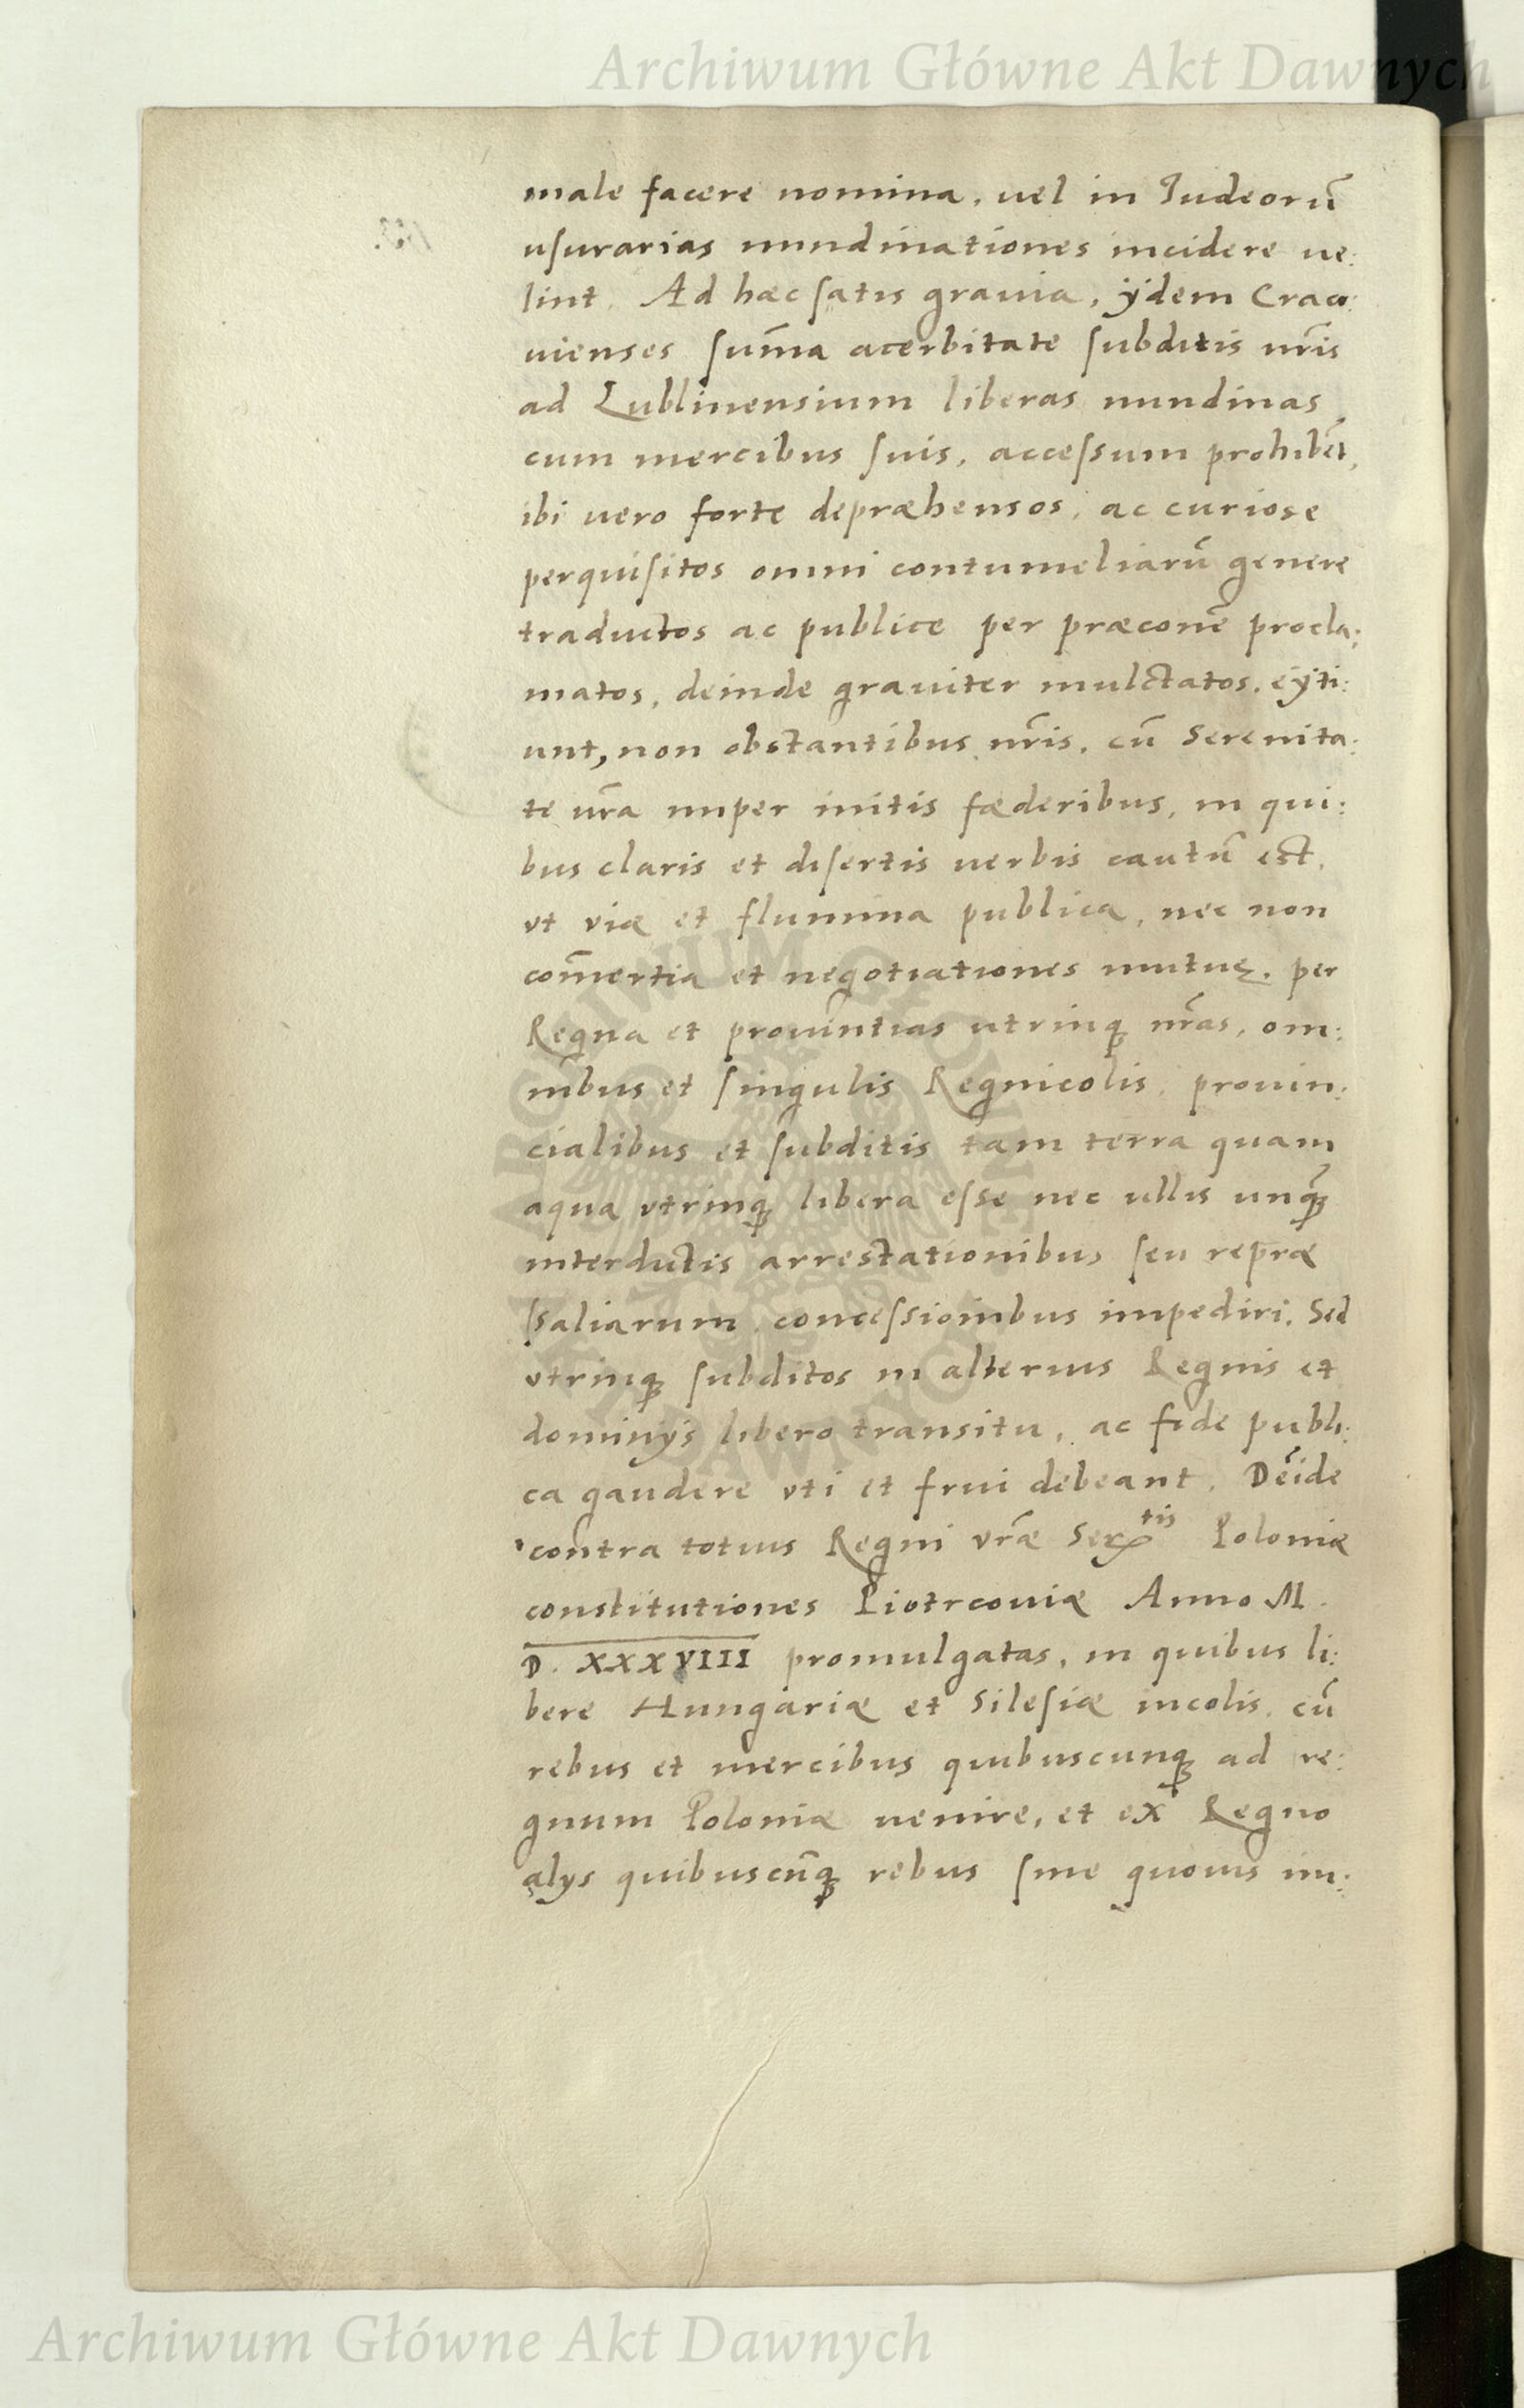 Archiwum Główne Akt Dawnych
male facere nomina, uel in Iudeorū
uſurarias nundinationes incidere ue:
lint. Ad hæc ſatis grauia, ÿdem Craco:
uienses ſum̄a acerbitate ſubditis nr̄is
ad Lublinensium liberas nundinas
cum mercibus ſuis, acceſsum prohibēt,
ibi uero forte depræhensos, ac curiose
perquiſitos omni contumeliarū genere
traductos ac publice per præconē procla:
matos, deinde grauiter mulctatos, eÿti:
unt, non obstantibus nr̄is, cū Serenita:
te vr̄a nuper initis fæderibus, in qui:
bus claris et diſertis uerbis cautū est,
vt viæ et flumina publica, nec non
com̄ertia et negotiationes mutuę, per
Regna et prouintias utrinq nr̄as, om:
nibus et ſingulis Regnicolis, prouin:
cialibus et ſubditis tam terra quam
aqua vtrinq libera eſse nec ullis unq̄
interdictis arrestationibus ſeu repræ
ſsaliarum conceſsionibus impediri. Sed
vtrinq ſubditos in alterius Regnis et
dominÿs libero transitu, ac fide publi:
ca gaudere vti et frui debeant. Dēide
contra totius Regni vr̄æ Serᵗⁱˢ Poloniæ
constitutiones Piotrcouiæ Anno M.
D. XXXVIII promulgatas, in quibus li:
bere Hungariæ et Sileſiæ incolis, cū
rebus et mercibus quibuscunq ad re:
gnum Poloniæ uenire, et ex Regno
alys quibuscūq rebus ſine quouis im:
ARCHIWUM GŁÓWNE AKT DAWNYCH
Archiwum Główne Akt Dawnych